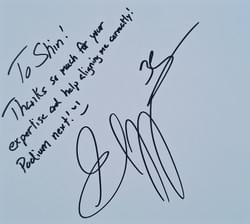 To Shin!
Thanks so much for your
expertise and help aligning me correctly!
Podium next! :)